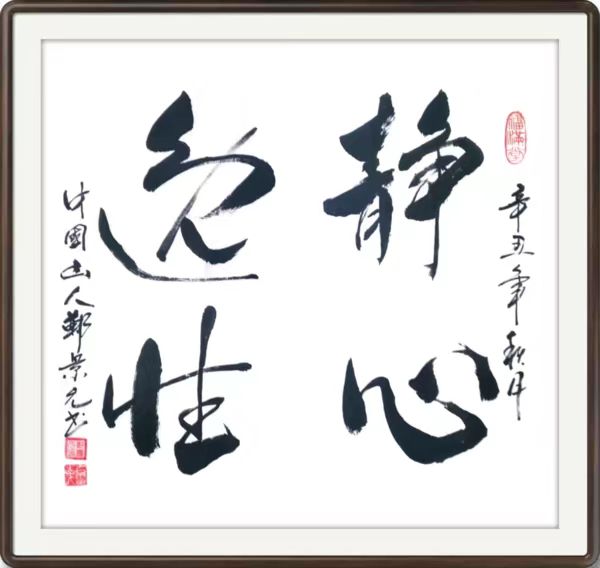 辛丑年秋月
静心
逸性
中國山人鄭景元书